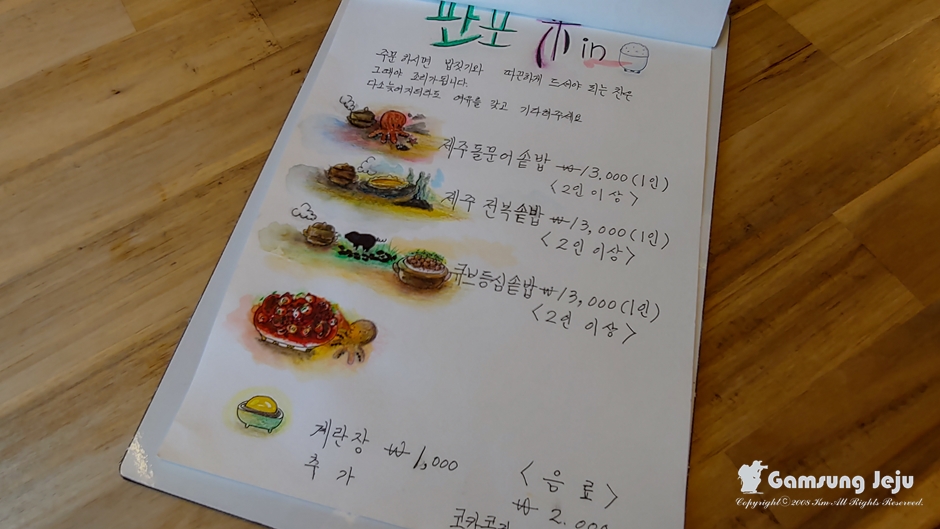 판포 미 in
주문 하시면 밥짓기와 따끈하게 드셔야 되는 찬은
그때야 조리가 됩니다.
다소 늦어지더라도 여유를 갖고 기다려주세요
제주돌문어솥밥 ₩13,000(1인)
<2인이상>
제주 전복솥밥 ₩13,000(1인)
<2인이상>
큐브등심솥밥 ₩13,000(1인)
<2인 이상>
계란장 ₩1,000
추가
<음료>
₩ 2,000
코카콜라
Gamsung Jeju
Copyright© 2008 Km All Rights Reserved.